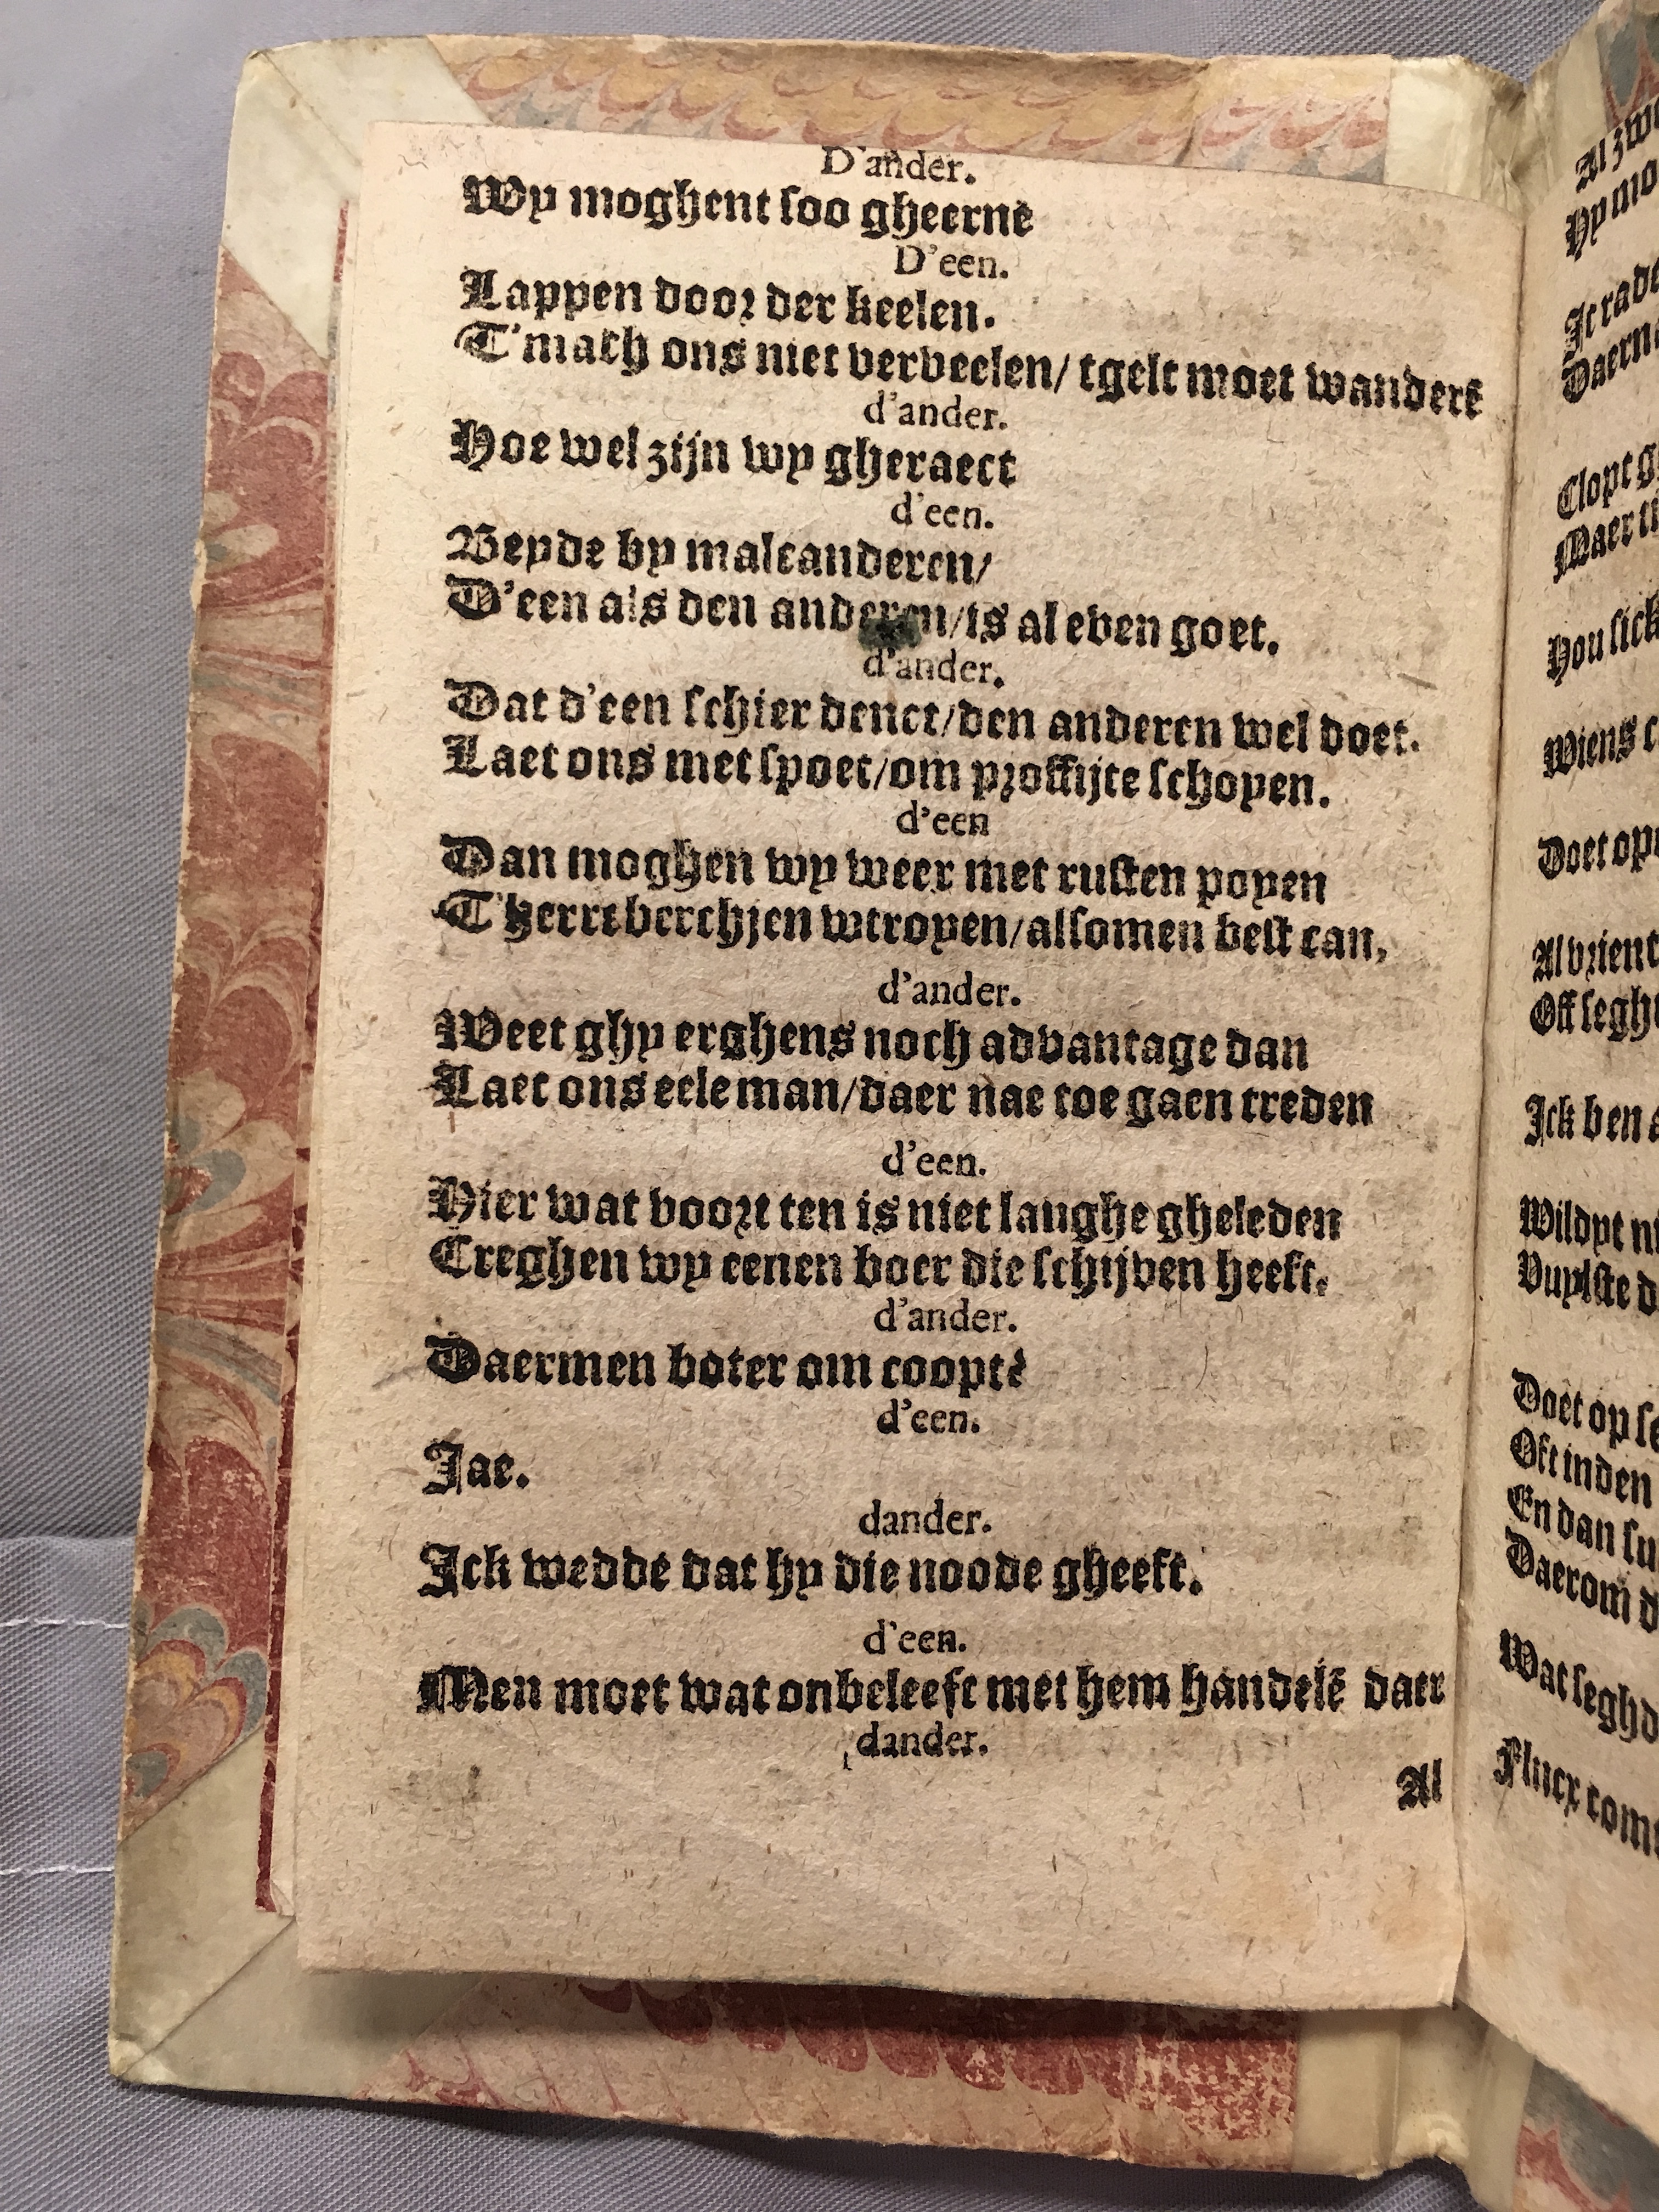 D'ander.
Wy moghent soo gheernē
D'een.
Lappen door der keelen.
T'mach ons niet verveelen/ tgelt moet wanderē
d'ander.
Hoe wel zijn wy gheraect
d'een.
Beyde by malcanderen/
D'een als den anderen/is al even goet.
d'ander.
Dat d'een schier denct/den anderen wel doet.
Laet ons met spoet/om proffijte schoyen.
d'een
Dan moghen wy weer met rusten poyen
T'herrebérchjen wtroyen/alsomen best can,
d'ander.
Weet ghy erghens noch advantage dan
Laet ons eele man/daer nae toe gaen treden
d'een.
Hier wat voort ten is niet langhe gheleden
Creghen wy eenen boer die schijven heeft.
d'ander.
Daermen boter om cooptē
d'een.
Jae.
dander.
Ick wedde dat hy die noode gheeft.
d'een.
Men moet wat onbeleeft met hem handelē daer
dander.
Al
Al
Hy
Jc rade
Clopt
Maer
Hou sick
Wiens
Doet op
Al vrient
Off segh
Jck ben
Wildyt
Vuylste
Doet op
Oft inden
En dan
Daerom
Wat segh
Flucx